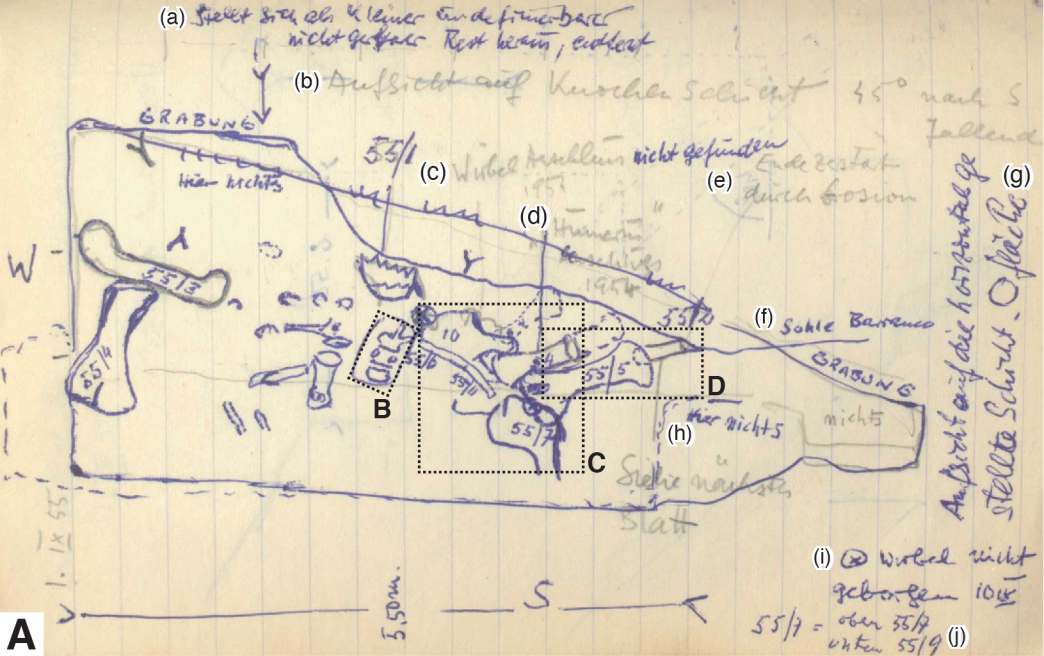 (a) Stellt sich als kleiner undefinierbarer
nicht Rest heraus, entfernt
(b) Aufsicht auf Knochenschicht 45° nach S
fallend
GRABUNG
55/1
(c) Wirbel Anschluss
1954
nicht gefunden
(e)
Ende zerstört
durch Erosion
(g)
Aufsicht auf die horizontal ge
stellte Schicht-Ofläche
Hier nichts
(d)
"Humerus"
Anschluss
1954
Y
Y
W
A
55/3
55/4
10
55/6
55/11
B
55/5
55/7
C
D
(f) Sohle Barranco
GRABUNG
nichts
(h) Hier nichts
Siehe nächstes
Blatt
1. IX 55
5,50 m.
S
(i) ⊗ Wirbel nicht
geborgen 10 IX
55/7 = oben 55/7
unten 55/9 (j)
A